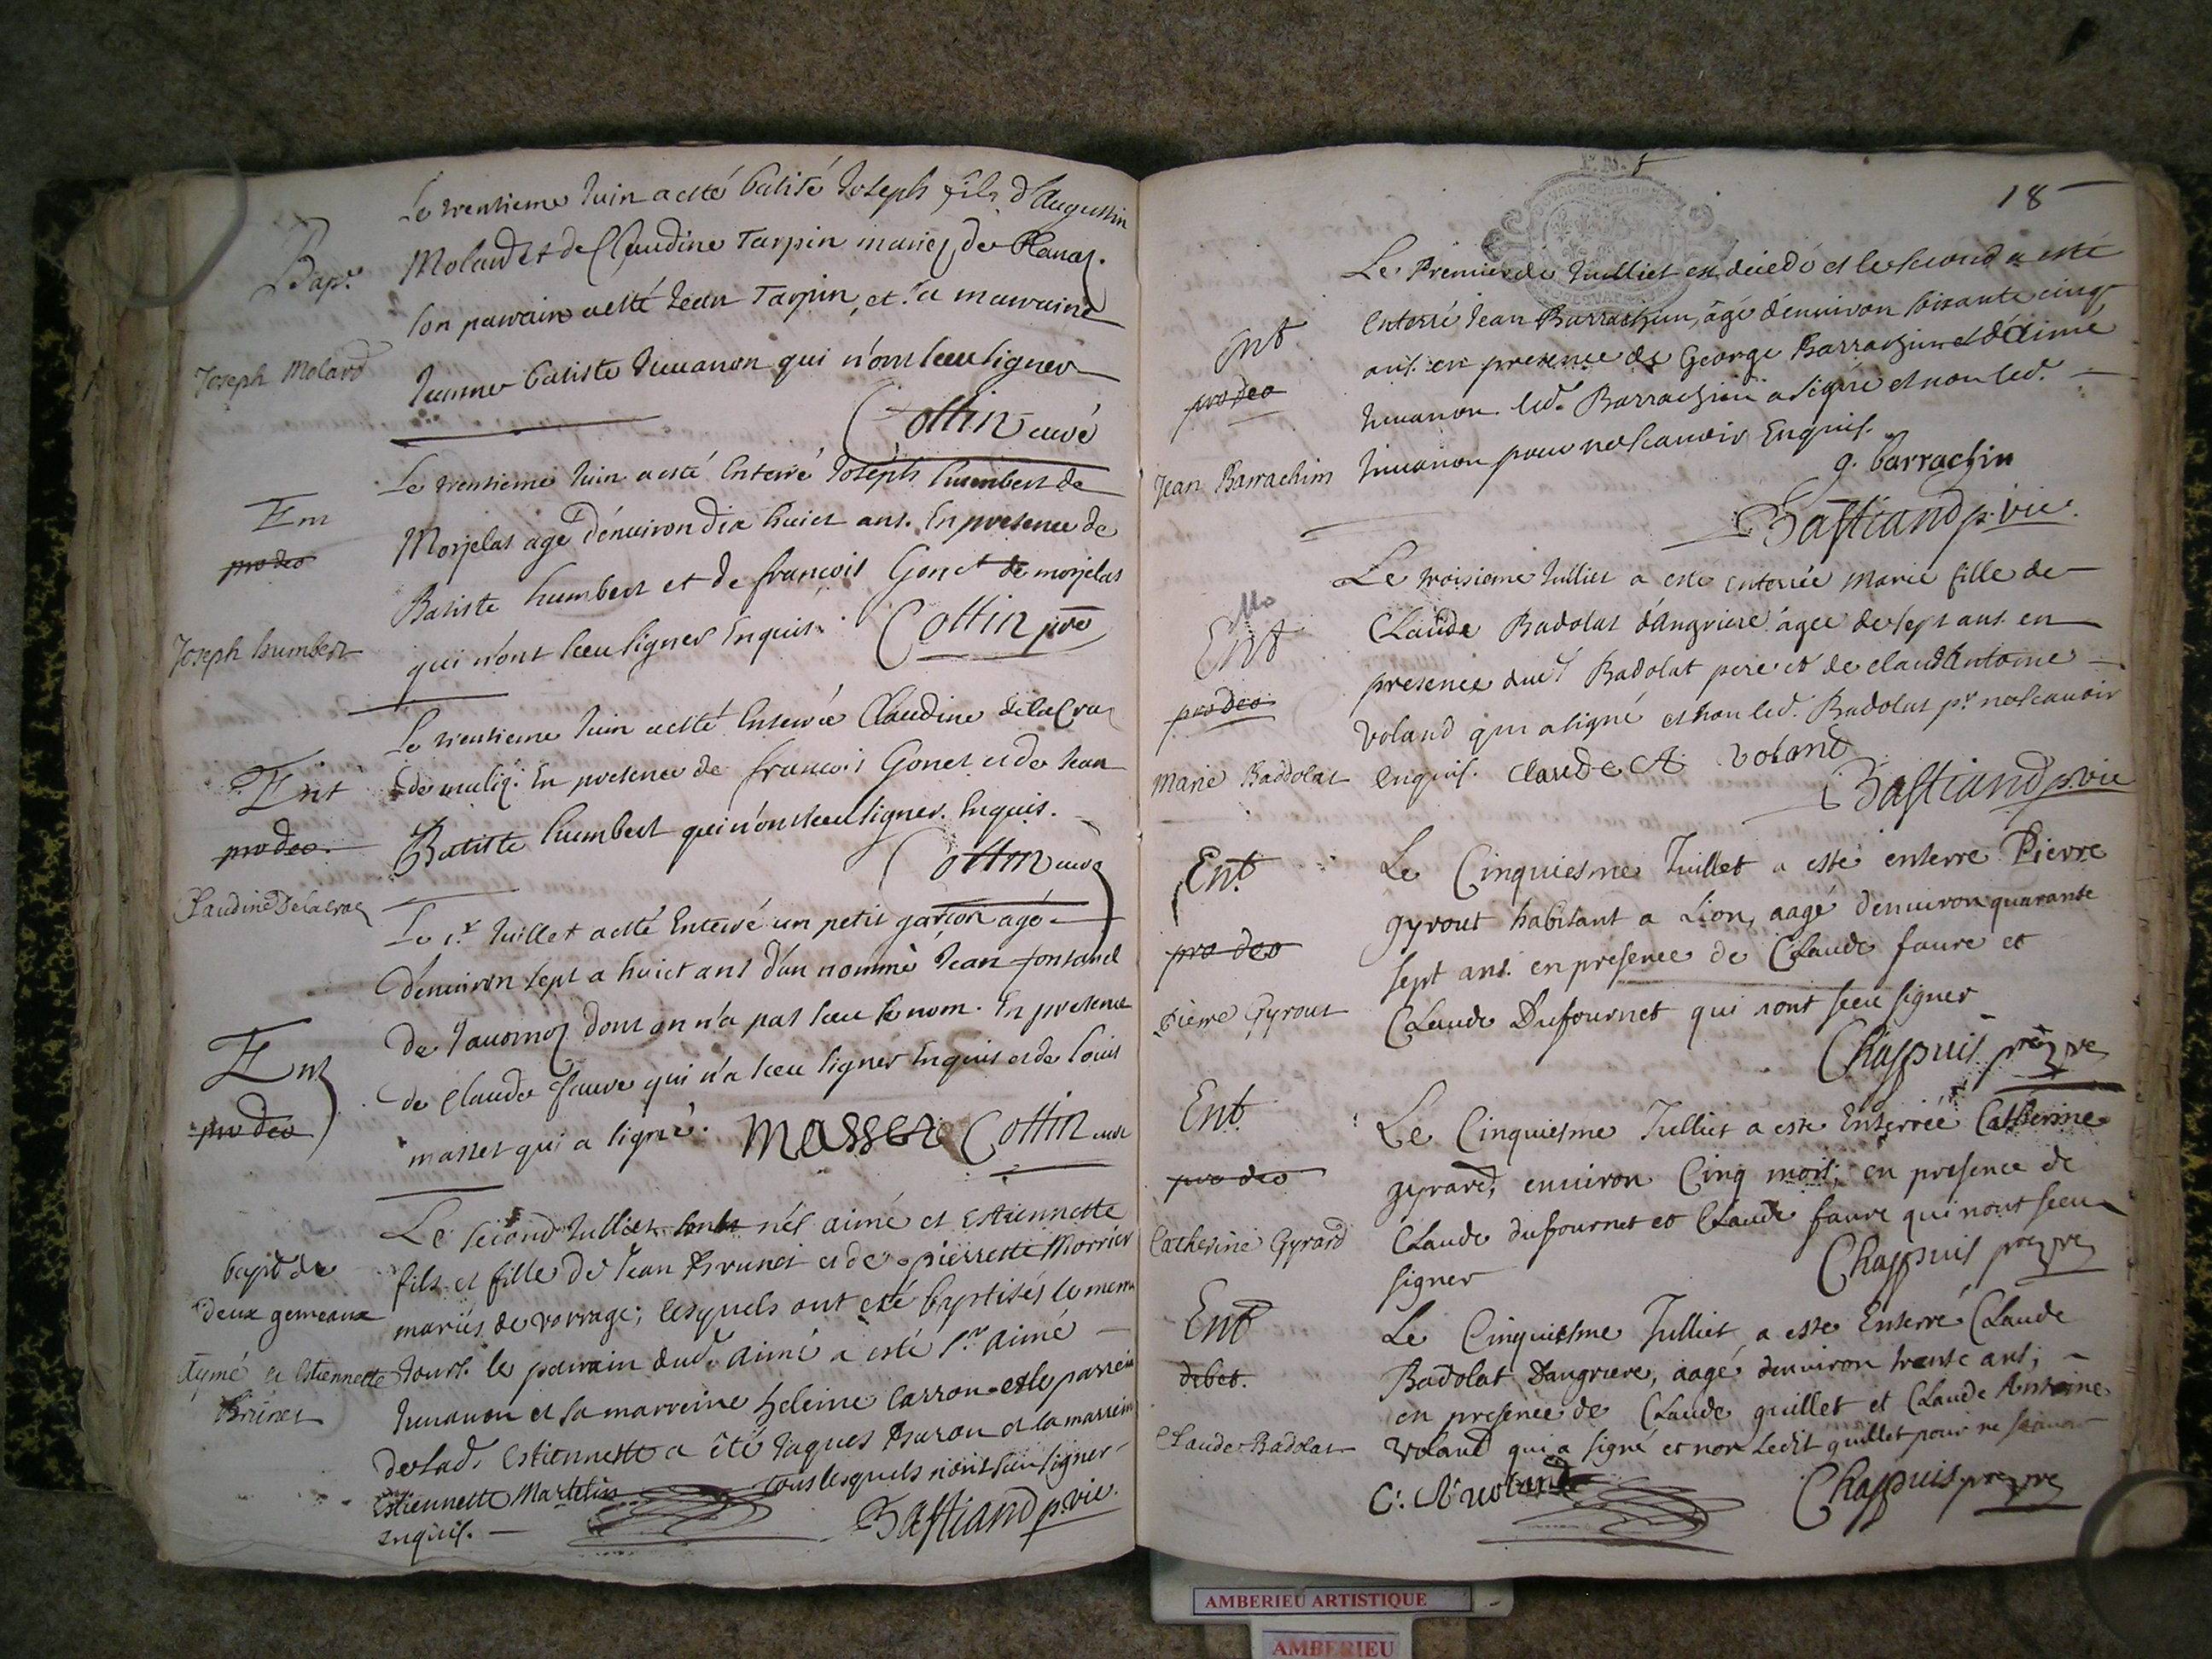 Le trentieme Juin a esté batisé Joseph fils d'Augustin
Bap.e
Molard et de Claudine Tarpin mariez de
son parrain a esté Jean Tarpin, et sa marraine
Joseph Molard
Jeanne batiste Juuanon qui n'ont sceu signer
Cottin curé
Le trentieme Juin a esté enterré Joseph humbert de
Ent
Morjelas agé d'enuiron dix huict ans. En presence de
pro deo
Batiste humbert et de francois Gonet de morjelas
Joseph humbert
qui n'ont sceu signer Enquis. Cottin pre
Le trentieme Juin a esté Enterrée Claudine delacraz
Ent
En presence de francois Gonet et de Jean
pro deo.
Batiste humbert qui n'ont sceu signer. Enquis.
Cottin curé
Claudine Delacraz
Le 1.r Juillet a esté Enterré un petit garçon agé
d'enuiron sept a huict ans d'un nommé Jean fontanel
de dont on n'a pas sceu le nom. En presence
Ent
de Claude faure qui n'a sceu signer Enquis et de Louis
pro deo
masset qui a signé. Masset Cottin curé
Le second Julliet nés aimé et Estiennette
bapt de
fils et fille de Jean Brunet et de pierrette Morrier
deux gemeaux
mariés de vorrage; lesquels ont eté baptisés le meme
Aymé et Estiennette
Jours. le parrain dud. aimé a esté Sr. aimé
Brunet
Juuanon et sa marreine heleine Carron et le parrein
de lad. Estiennette a êté Jaques Buron et la marreine
Estiennette Martelin tous lesquels n'ont sceu signer
enquis. Bastiand p. vic.
18
Le Premier de Juilliet est décedé et le second a esté
Ent
enterré Jean Barrachin, âgé d'enuiron soixante cinq
pro deo
ans. en presence de George Barrachin et d'aimé
Juuanon. led. Barrachin a signé et non led.
Jean Barrachim
Juuanon pour ne scauoir Enquis.
g. barrachin
Bastiand p. vic.
Le troisieme Julliet a esté enterrée Marie fille de
Ent
Claude Badolat d'Angriere âgée de sept ans. en
presence dud Badolat pere et de claud Antoine
pro deo
Voland qui a signé et non led. Badolat pr. ne scauoir
Marie Baddolat
enquis. claude A Volant
Bastiand p. vic
Ent.
Le Cinquiesme Juillet a esté enterré Pierre
gyrout habitant a Lion, aagé d'enuiron quarante
pro deo
sept ans. en presence de Claude faure et
Pierre Gyrout
Claude Dufournet qui nont sceu signer
Chappuis
Ent
Le Cinquiesme Julliet a esté Enterrée Catherine
pro deo
gyrard, enuiron Cinq mois, en presence de
Catherine Gyrard
Claude dufournet et Claude faure qui nont sceu
signer
Chappuis
Ent
Le Cinquiesme Julliet a esté Enterré Claude
debet.
Badolat Dangriere, aagé denuiron trente ans,
en presence de Claude guillet et Claude Antoine
Claude Badolat
Voland qui a signé et non Ledit guillet pour ne scauoir
Chappuis
AMBERIEU ARTISTIQUE
AMBERIEU